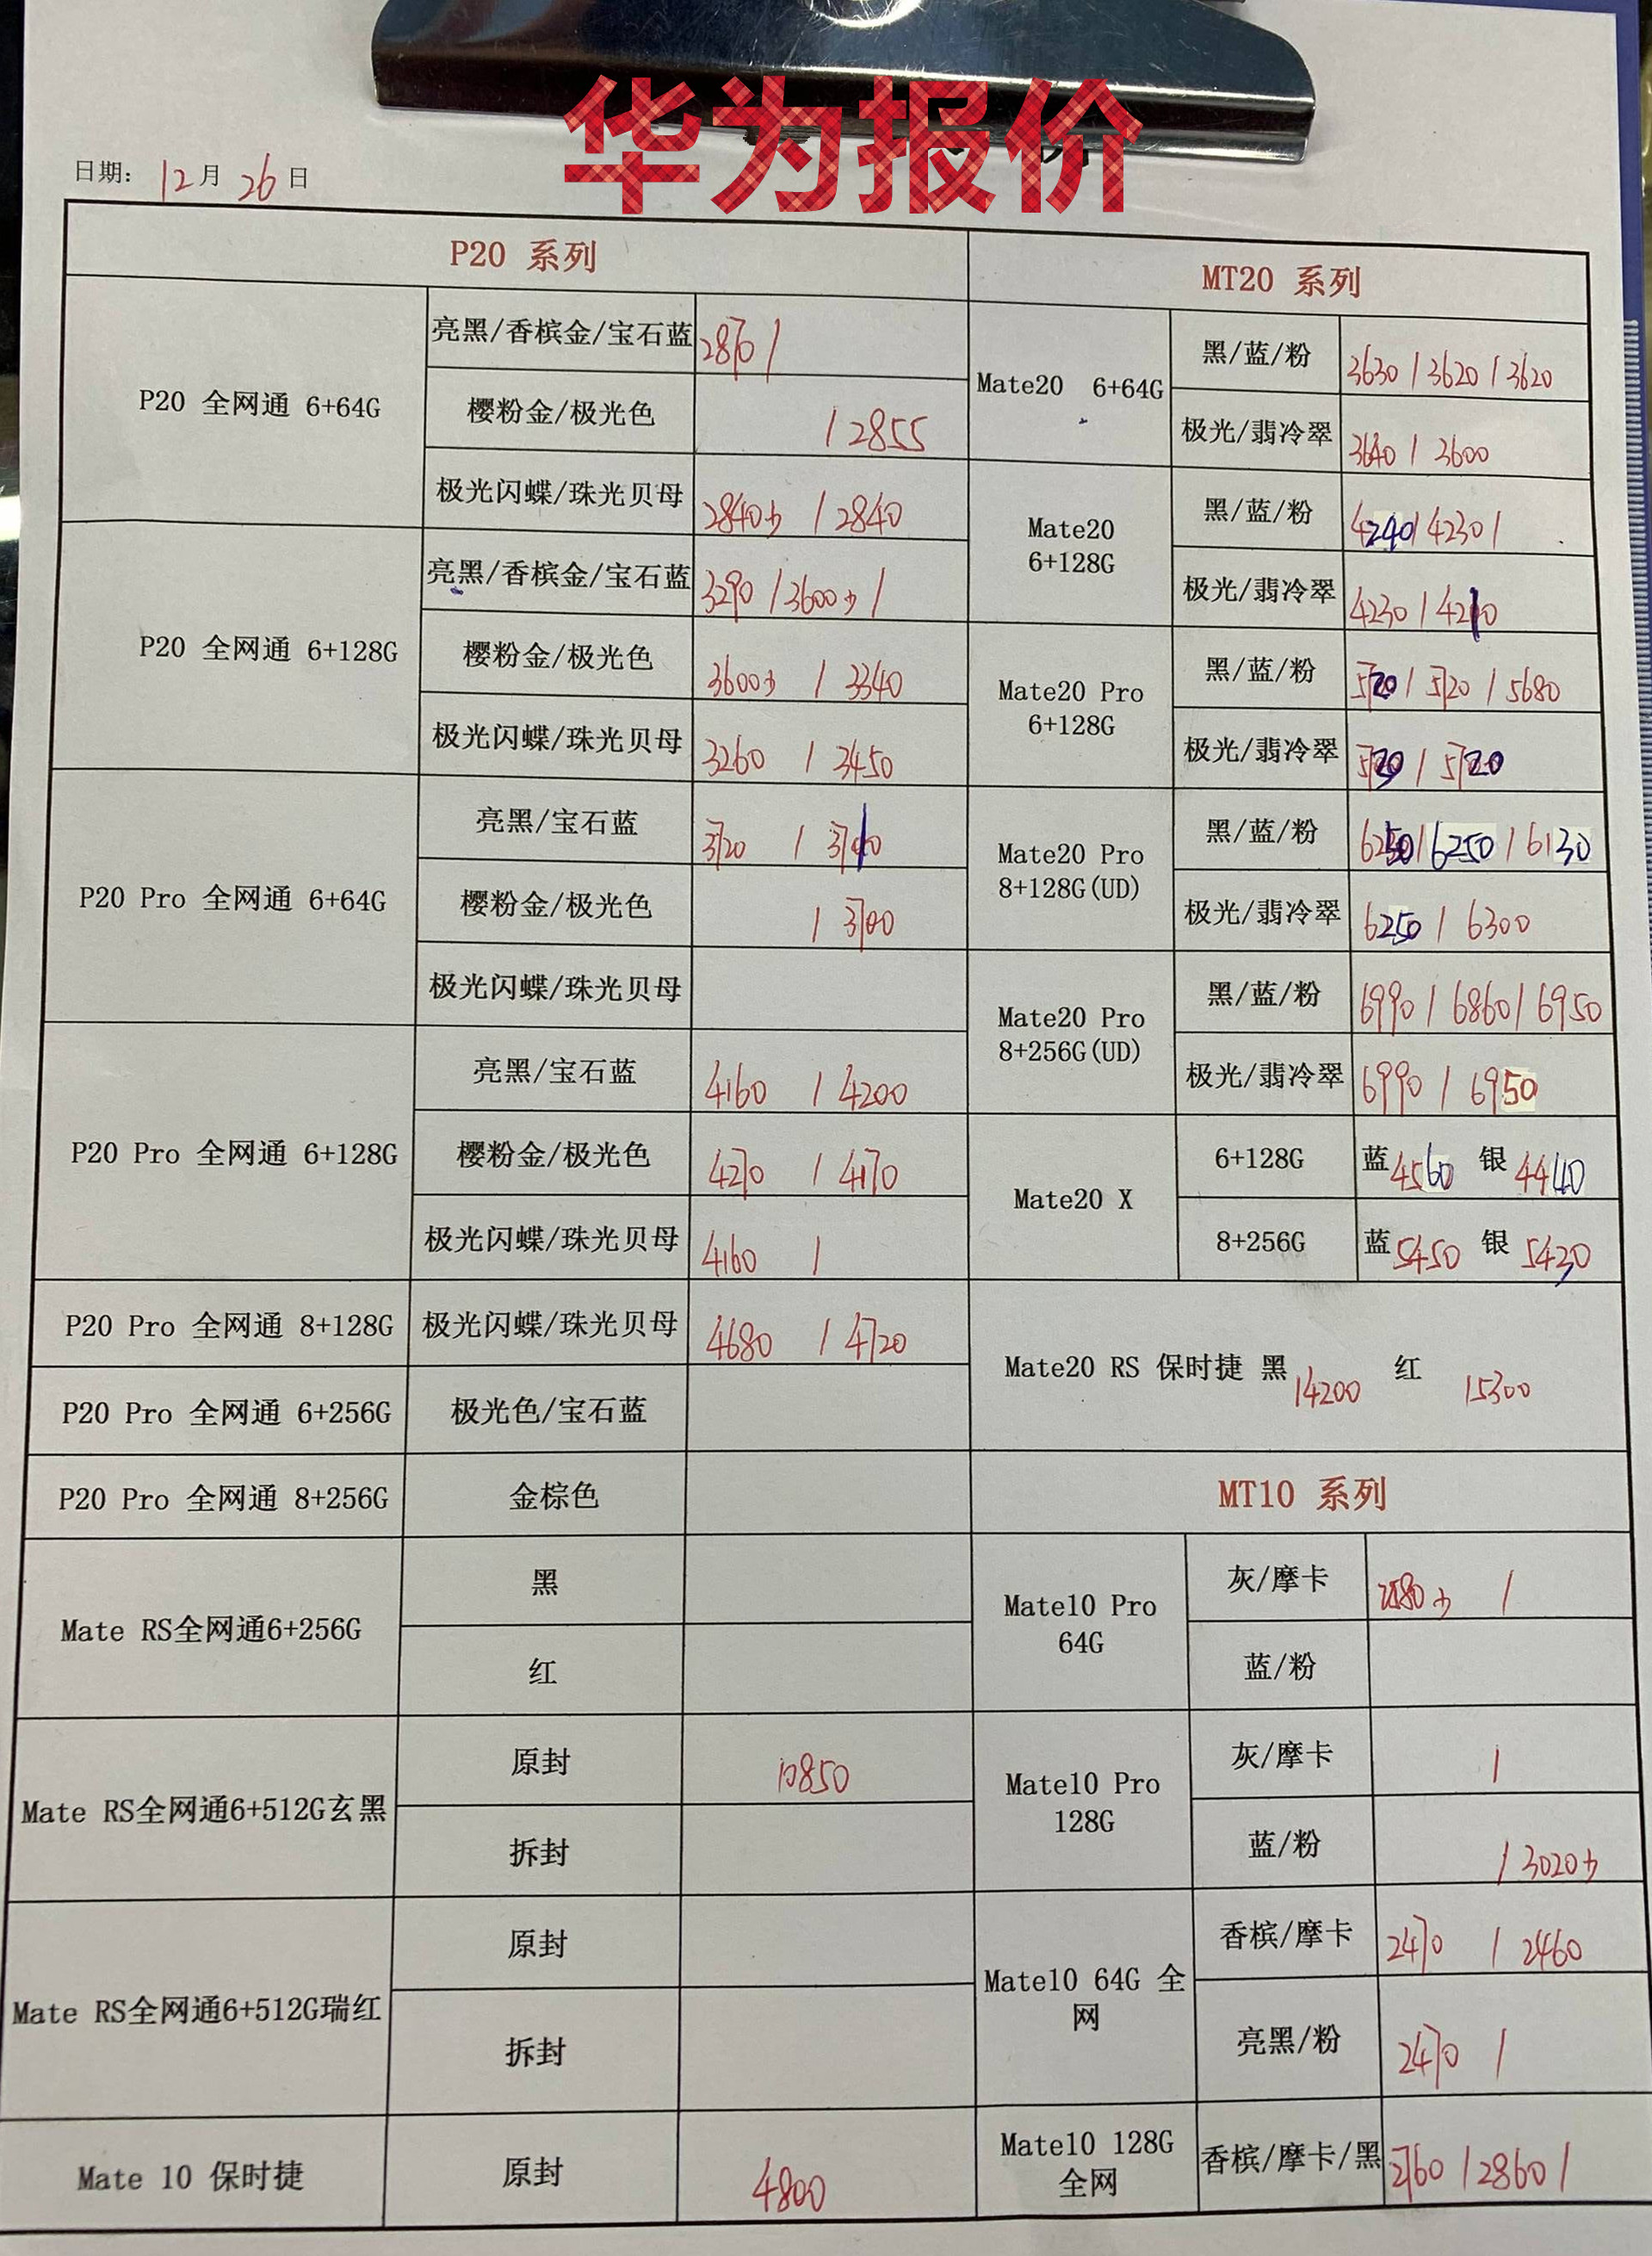 华为报价
日期: 12月 26日
P20 系列
P20 全网通 6+64G
亮黑/香槟金/宝石蓝 2870 /
樱粉金/极光色 / 2855
极光闪蝶/珠光贝母 2840少 / 2840
P20 全网通 6+128G
亮黑/香槟金/宝石蓝 3290 / 3600少 /
樱粉金/极光色 3600少 / 3340
极光闪蝶/珠光贝母 3260 / 3450
P20 Pro 全网通 6+64G
亮黑/宝石蓝 3720 /
樱粉金/极光色 / 3700
极光闪蝶/珠光贝母
P20 Pro 全网通 6+128G
亮黑/宝石蓝 4160 / 4200
樱粉金/极光色 4270 / 4170
极光闪蝶/珠光贝母 4160 /
P20 Pro 全网通 8+128G 极光闪蝶/珠光贝母 4680 / 4720
P20 Pro 全网通 6+256G 极光色/宝石蓝
P20 Pro 全网通 8+256G 金棕色
Mate RS全网通6+256G
黑
红
Mate RS全网通6+512G玄黑
原封 10850
拆封
Mate RS全网通6+512G瑞红
原封
拆封
Mate 10 保时捷 原封 4800
MT20 系列
Mate20 6+64G
黑/蓝/粉 3630 / 3620 / 3620
极光/翡冷翠 3640 / 3600
Mate20
6+128G
黑/蓝/粉 4240 / 4230 /
极光/翡冷翠 4230 / 4210
Mate20 Pro
6+128G
黑/蓝/粉 5720 / 5720 / 5680
极光/翡冷翠 5720 / 5720
Mate20 Pro
8+128G(UD)
黑/蓝/粉 6250 / 6250 / 6130
极光/翡冷翠 6250 / 6300
Mate20 Pro
8+256G(UD)
黑/蓝/粉 6990 / 6860 / 6950
极光/翡冷翠 6990 / 6950
Mate20 X
6+128G 蓝 4560 银 4440
8+256G 蓝 5450 银 5430
Mate20 RS 保时捷 黑 14200 红 15300
MT10 系列
Mate10 Pro
64G
灰/摩卡 少 /
蓝/粉
Mate10 Pro
128G
灰/摩卡 /
蓝/粉 / 3020少
Mate10 64G 全
网
香槟/摩卡 2470 / 2460
亮黑/粉 2470 /
Mate10 128G
全网
香槟/摩卡/黑 2760 / 2860 /